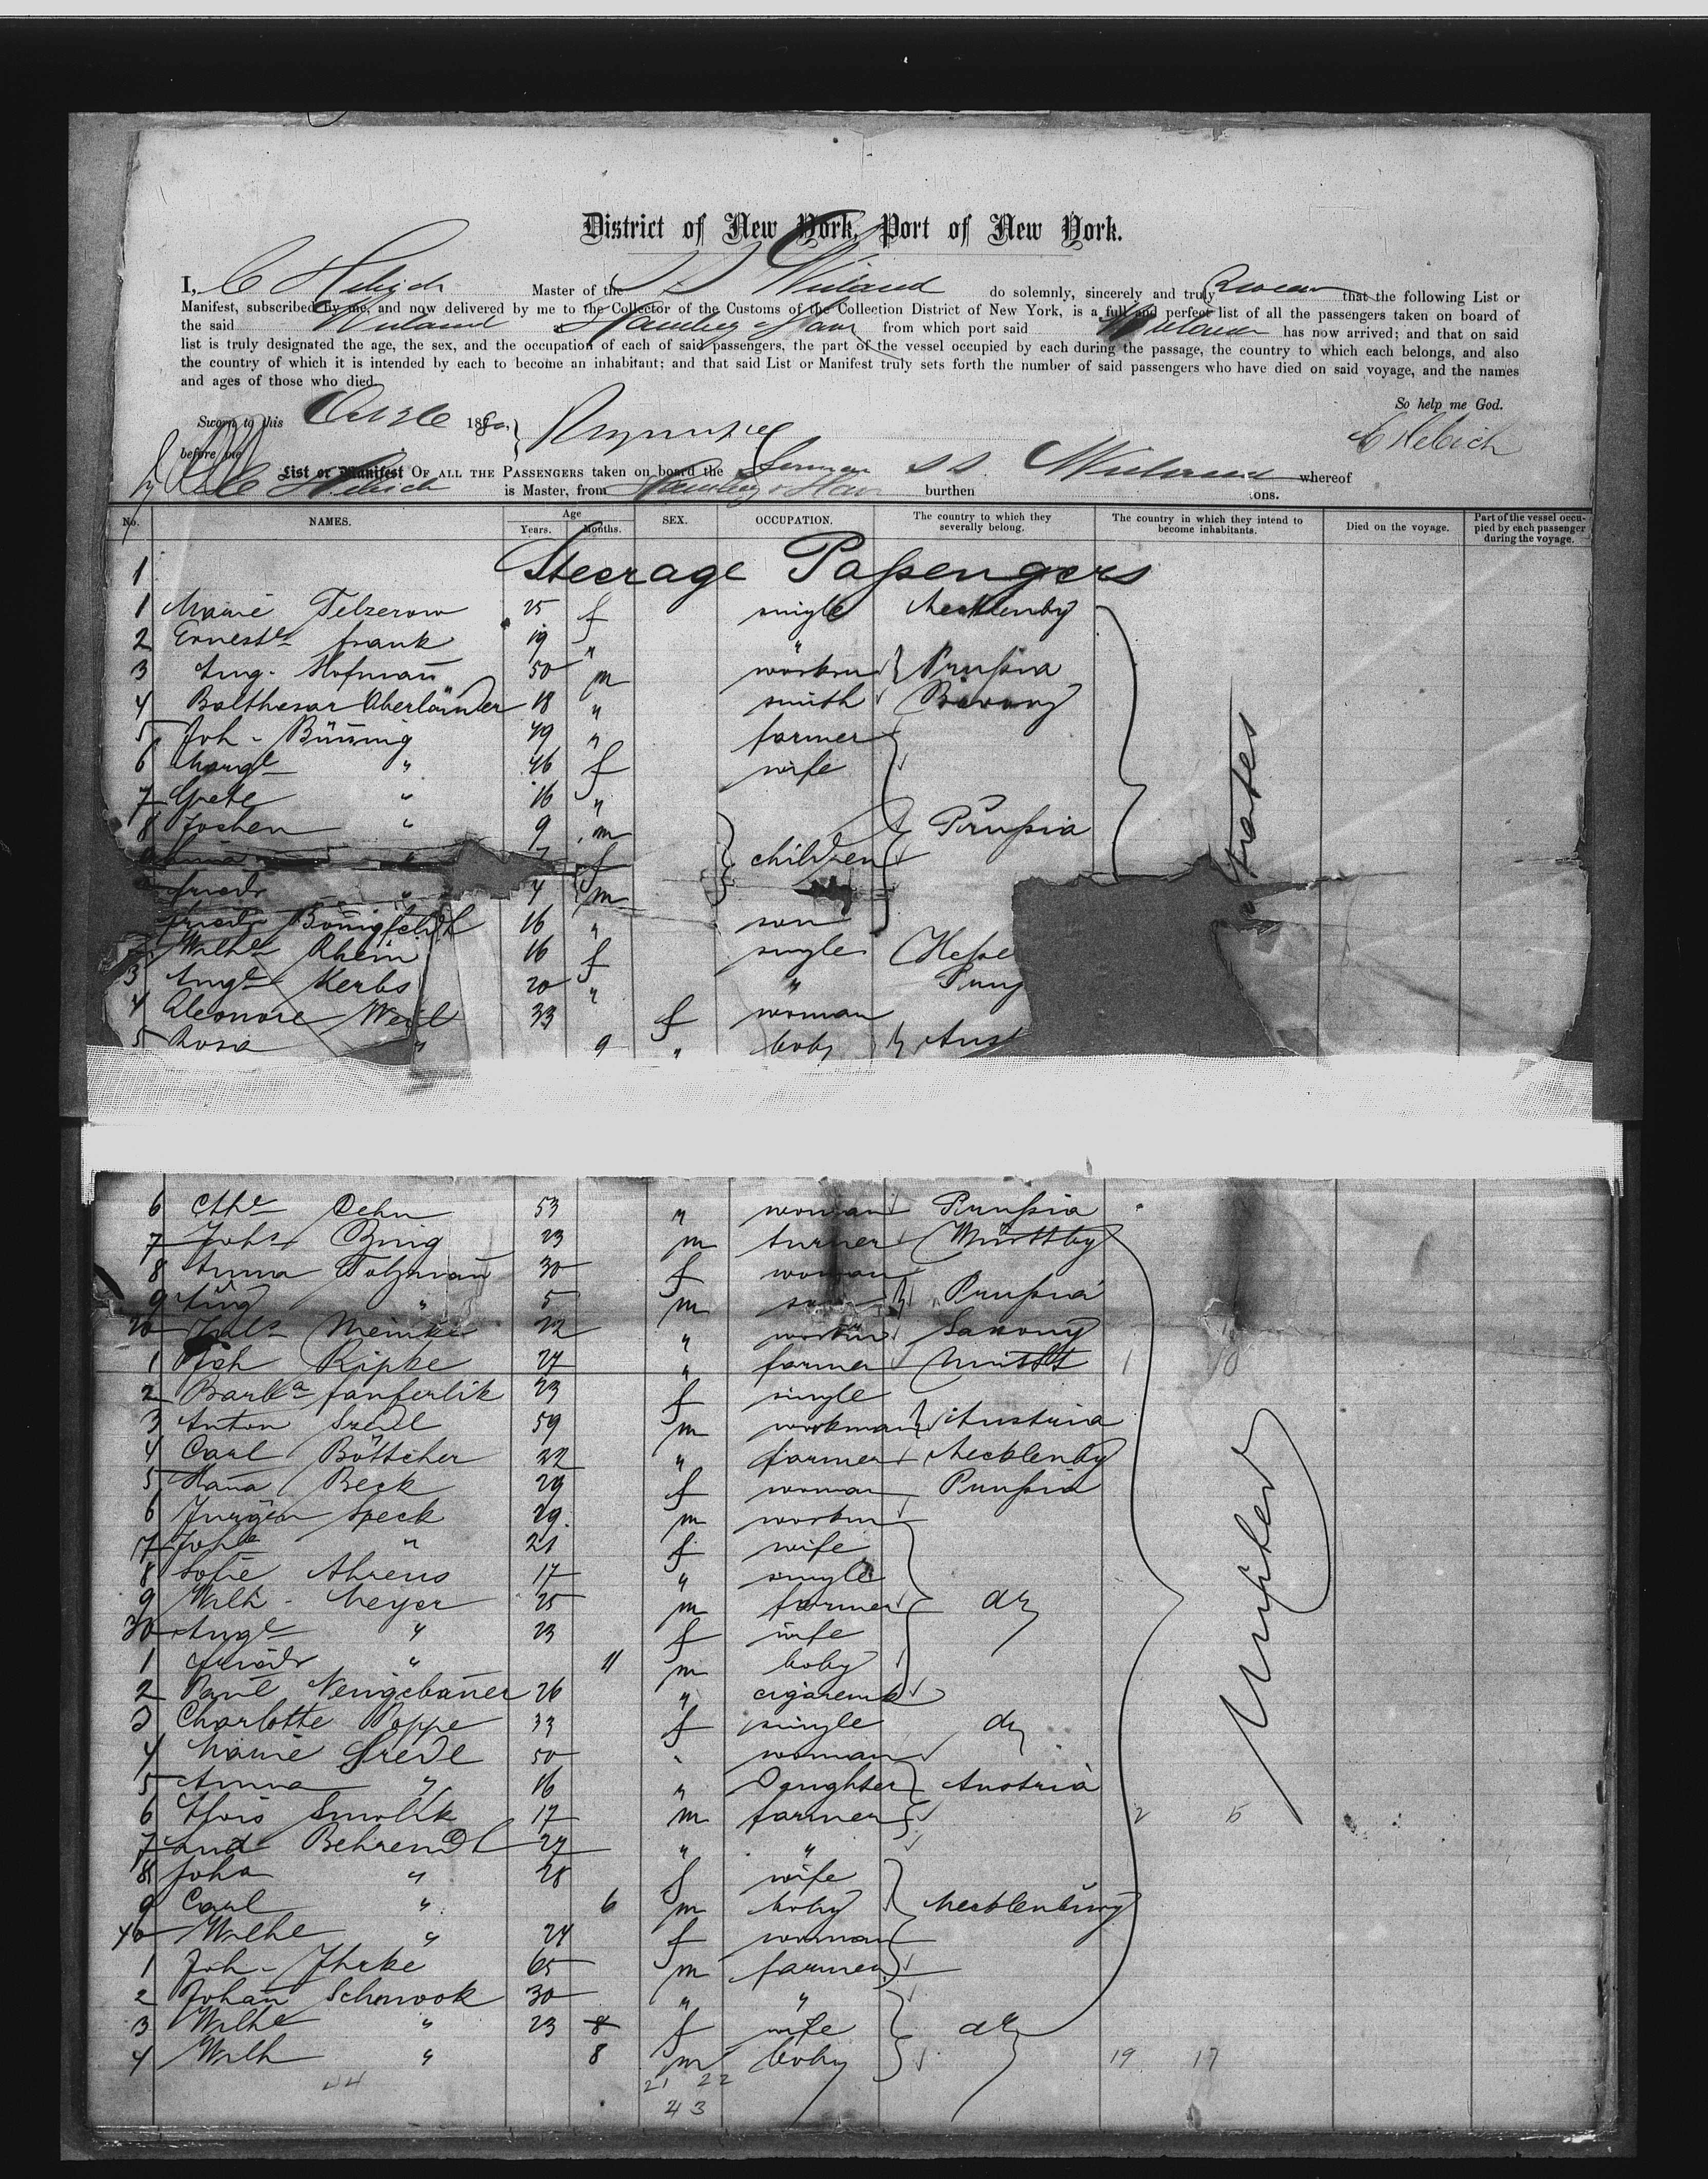 District of New York, Port of New York.
I, C Hebich Master of the SS Wieland do solemnly, sincerely and truly Swear that the following List or
Manifest, subscribed by me, and now delivered by me to the Collector of the Customs of the Collection District of New York, is a full and perfect list of all the passengers taken on board of
the said Wieland Hamburg & Havre from which port said Wieland has now arrived; and that on said
list is truly designated the age, the sex, and the occupation of each of said passengers, the part of the vessel occupied by each during the passage, the country to which each belongs, and also
the country of which it is intended by each to become an inhabitant; and that said List or Manifest truly sets forth the number of said passengers who have died on said voyage, and the names
and ages of those who died.
So help me God.
Sworn to this Oct 26 1880
before me C Hebich
List or Manifest OF ALL THE PASSENGERS taken on board the German SS. Wieland whereof
C Hebich is Master, from Hamburg & Hav burthen tons.
No. NAMES. Age Years. Months. SEX. OCCUPATION. The country to which they severally belong. The country in which they intend to become inhabitants. Died on the voyage. Part of the vessel occupied by each passenger during the voyage.
1 Steerage Passengers
1 Marie Telzerow 25 f single Mecklenbg
2 Ernest frank 19 " "
3 Aug. Hofman 50 m workm Prussia
4 Balthesar Oberländer 18 " smith
5 Joh - Büning 49 " farmer
6 Marg " 46 f wife
7 Grete " 16 "
8 Jochen " 9 m Prussia
" 7 f children
friedr " 4 m
friedr 16 " son
Wilhe Rhein 16 f single Hesse
3 Aug Kerbs 20 " "
4 Eleonore Weil 33 f woman
5 Rosa " 9 " baby Aust
6 Cthe Dehn 53 " woman Prussia
7 Johs Bing 23 m turner Württbg
8 Anna 30 f woman
9 Aug " 5 m son Prussia
20 Meinke 22 " workm Saxony
1 Joh Ripke 27 " farmer
2 Barba fanferlik 23 f single
3 Anton 59 m workman Austria
4 Carl Böttcher 22 " farmer Mecklenbg
5 Hana Beck 29 f woman Prussia
6 Jürgen Speck 29 m workm
7 " 21 f wife
8 Sofie Ahrens 17 " single
9 Wilh - Meyer 25 m farmer do
30 Aug " 23 f wife
1 friedr " 11 m baby
2 Paul Neugebauer 26 " cigaremk
3 Charlotte Poppe 33 f single do
4 Marie 50 " woman
5 Anna " 16 " Daughter Austria
6 Alois Smolik 17 m farmer 2 15
7 Behrendt 27 " "
8 Joha " 28 f wife
9 Carl " 6 m baby Mecklenburg
40 Wilhe " 24 f woman
1 Joh - Ihrke 65 m farmer
2 Johan Schmook 30 " "
3 Wilhe " 23 8 f wife do
4 Wilh " 8 m baby 19 17
United States
44 21 22
43